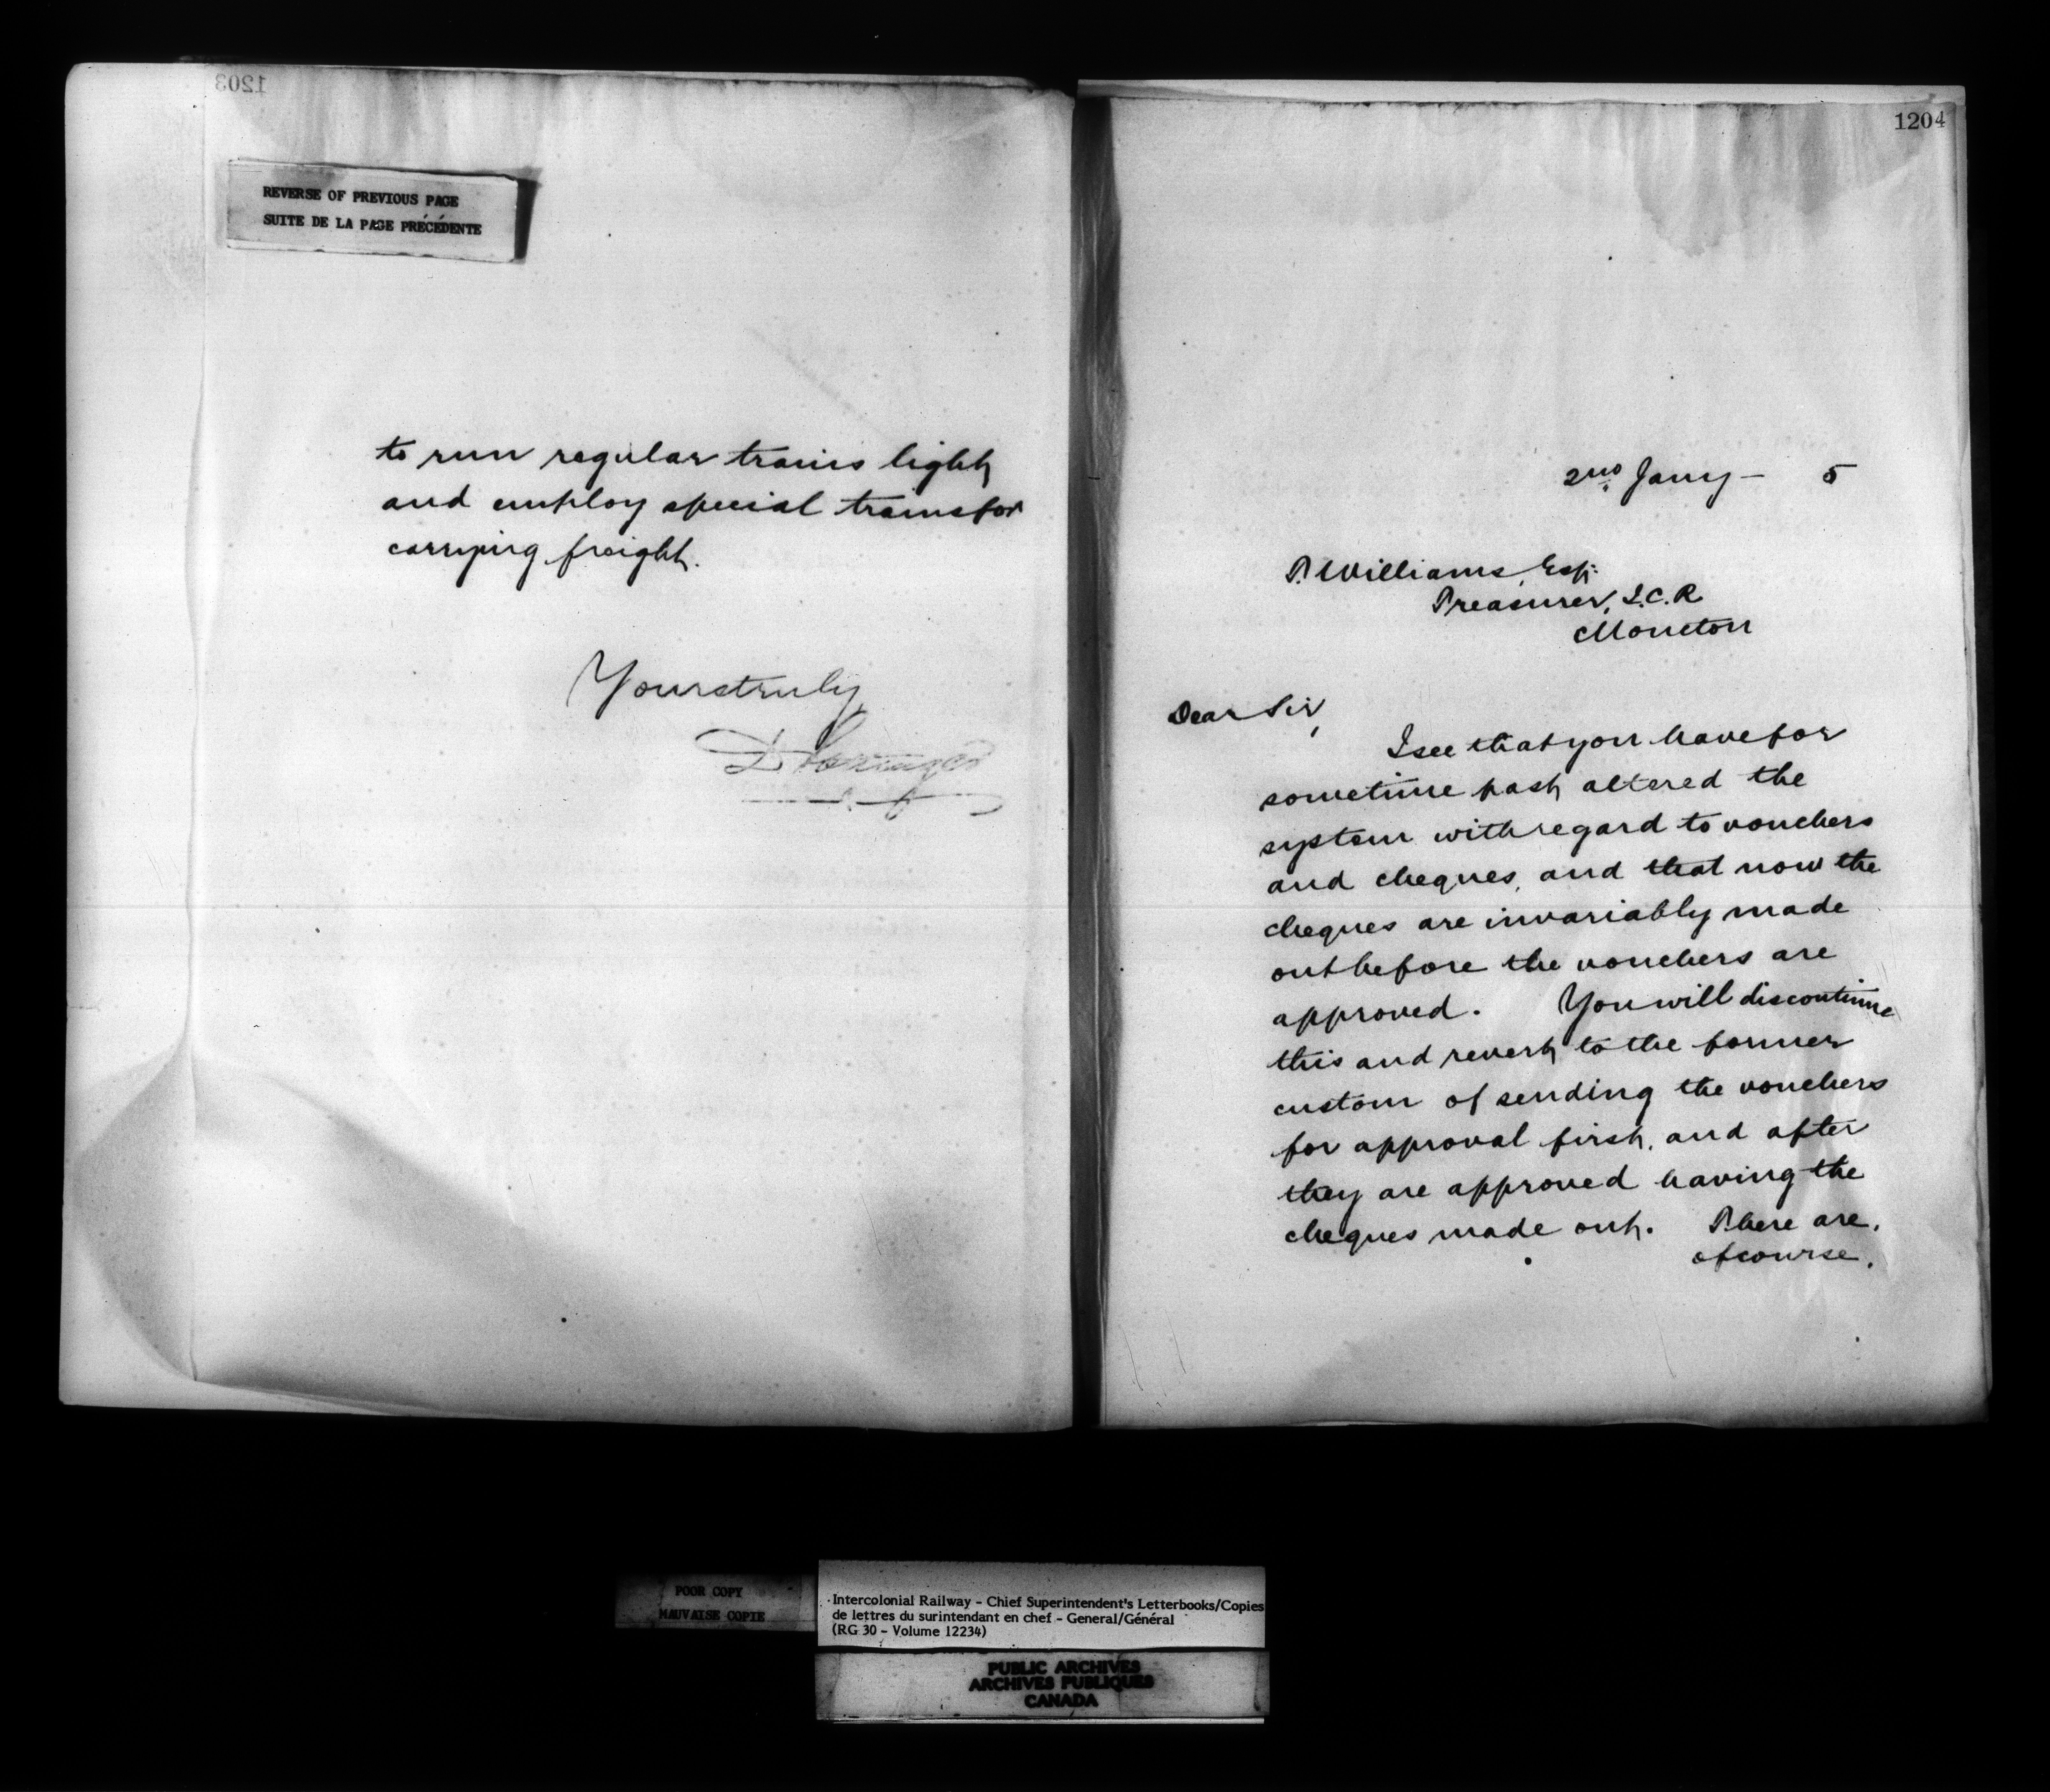 1203
REVERSE OF PREVIOUS PAGE
SUITE DE LA PAGE PRÉCÉDENTE
to run regular trains light
and employ special trains for
carrying freight.
Yours truly,
1204
2nd Jany - 5
T. Williams, Esq:
Treasurer, I.C.R
Moncton
Dear Sir,
I see that you have for
sometime past altered the
system with regard to vouchers
and cheques, and that now the
cheques are invariably made
out before the vouchers are
approved. You will discontinue
this and revert to the former
custom of sending the vouchers
for approval first, and after
they are approved having the
cheques made out. There are,
of course,
POOR COPY
MAUVAISE COPIE
Intercolonial Railway - Chief Superintendent's Letterbooks/Copies
de lettres du surintendant en chef - General/Général
(RG 30 - Volume 12234)
PUBLIC ARCHIVES
ARCHIVES PUBLIQUES
CANADA